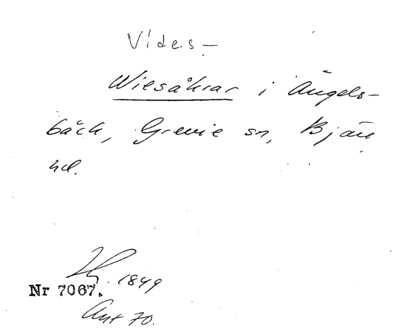 Vides-
Wiesåkrar i Ängels-
bäck, Grevie sn, Bjäre
hd.
1849
Nr 7067.
Akt 70.